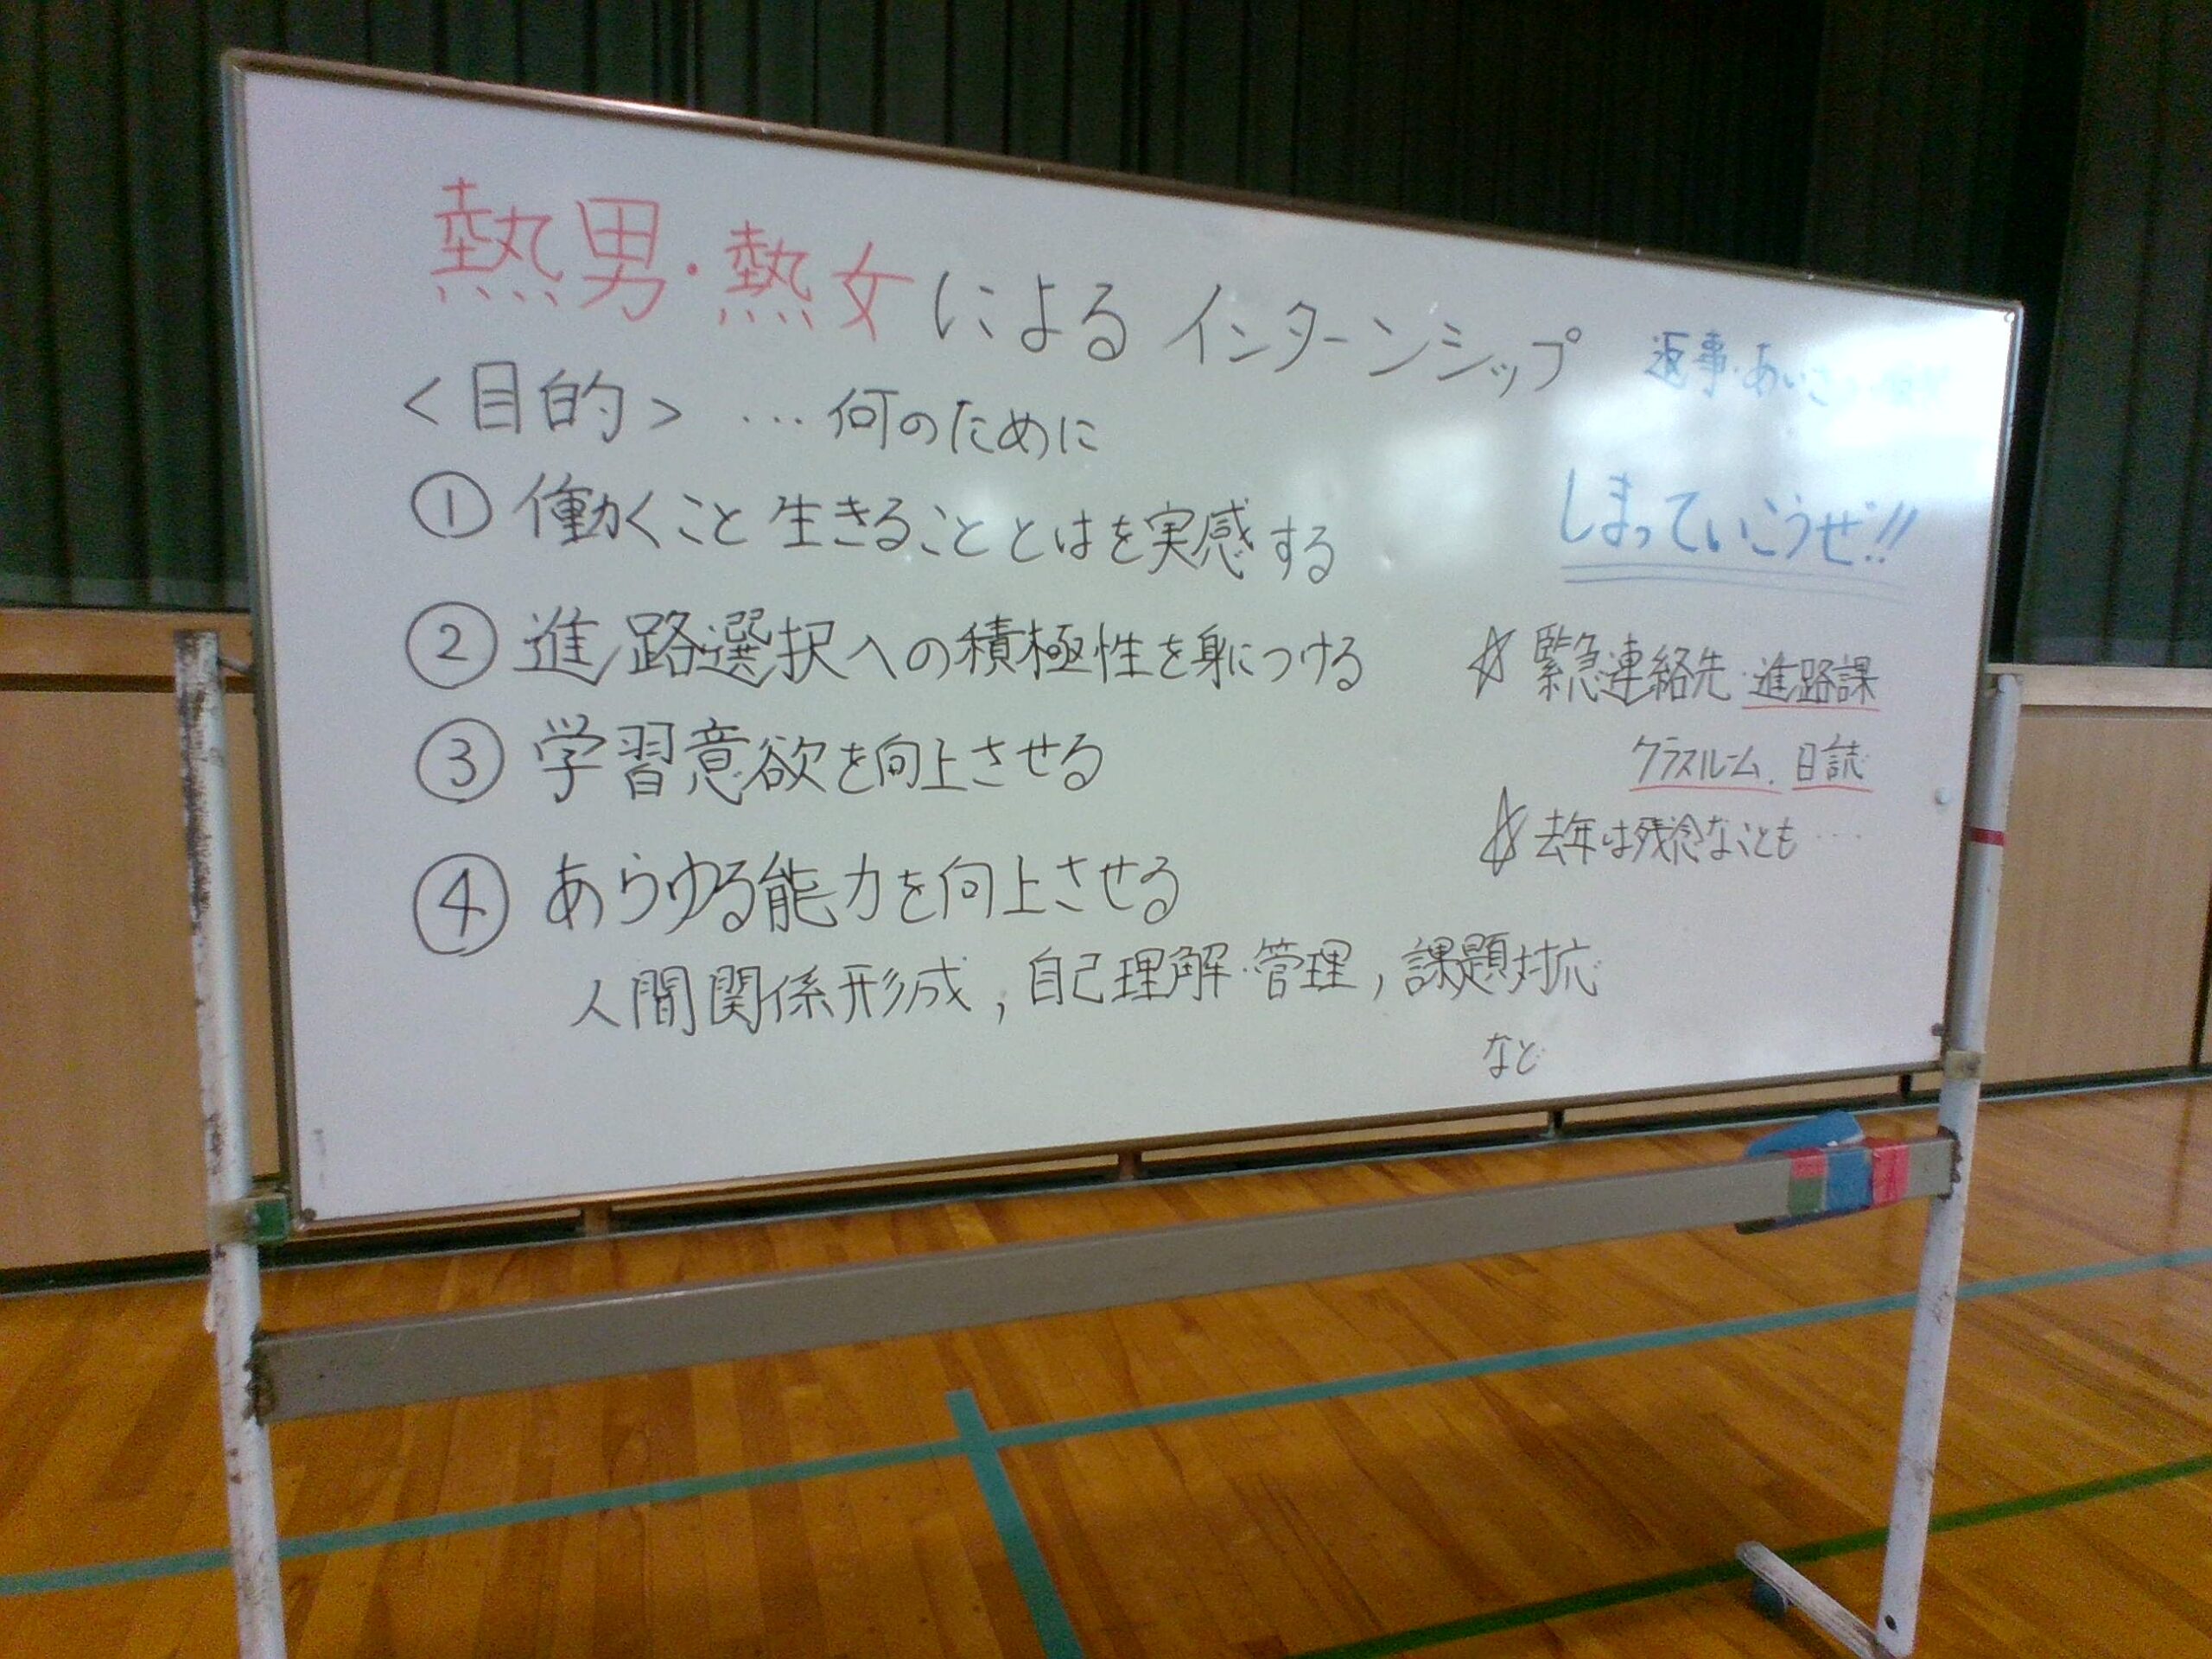 熱男・熱女によるインターンシップ
返事・あいさつ
<目的> …何のために
しまっていこうぜ!!
① 働くこと 生きること とはを実感する
② 進路選択への積極性を身につける
☆ 緊急連絡先・進路課
クラスルーム、日誌
③ 学習意欲を向上させる
☆ 去年は残念なことも……
④ あらゆる能力を向上させる
人間関係形成, 自己理解・管理, 課題対応
など